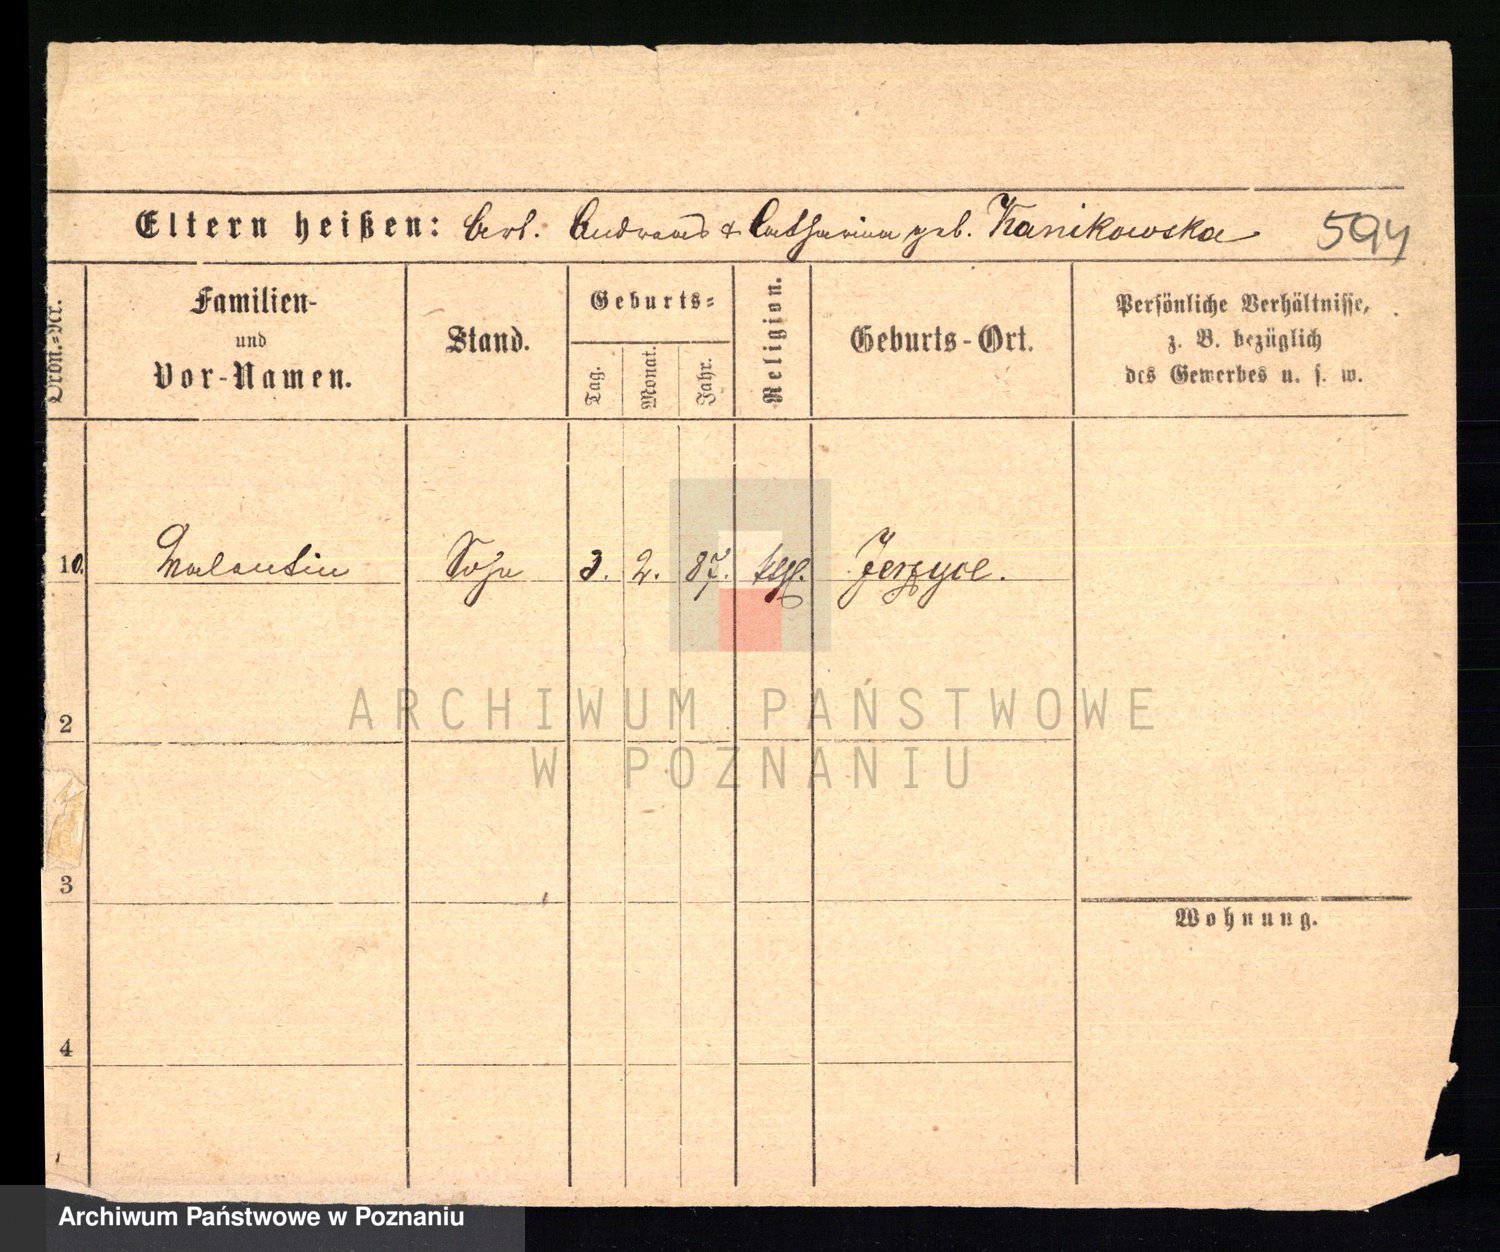 Eltern heißen: Arb. Andreas & Catharina geb. Kanikowska 594
Ordn.-Nr.
Familien-
und
Vor-Namen.
Stand.
Geburts-
Tag.
Monat.
Jahr.
Religion.
Geburts-Ort.
Persönliche Verhältnisse,
z. B. bezüglich
des Gewerbes u. s. w.
10. Valentin Sohn 3. 2. 87. Jerzyce.
2
3
Wohnung.
4
ARCHIWUM PAŃSTWOWE
W POZNANIU
Archiwum Państwowe w Poznaniu